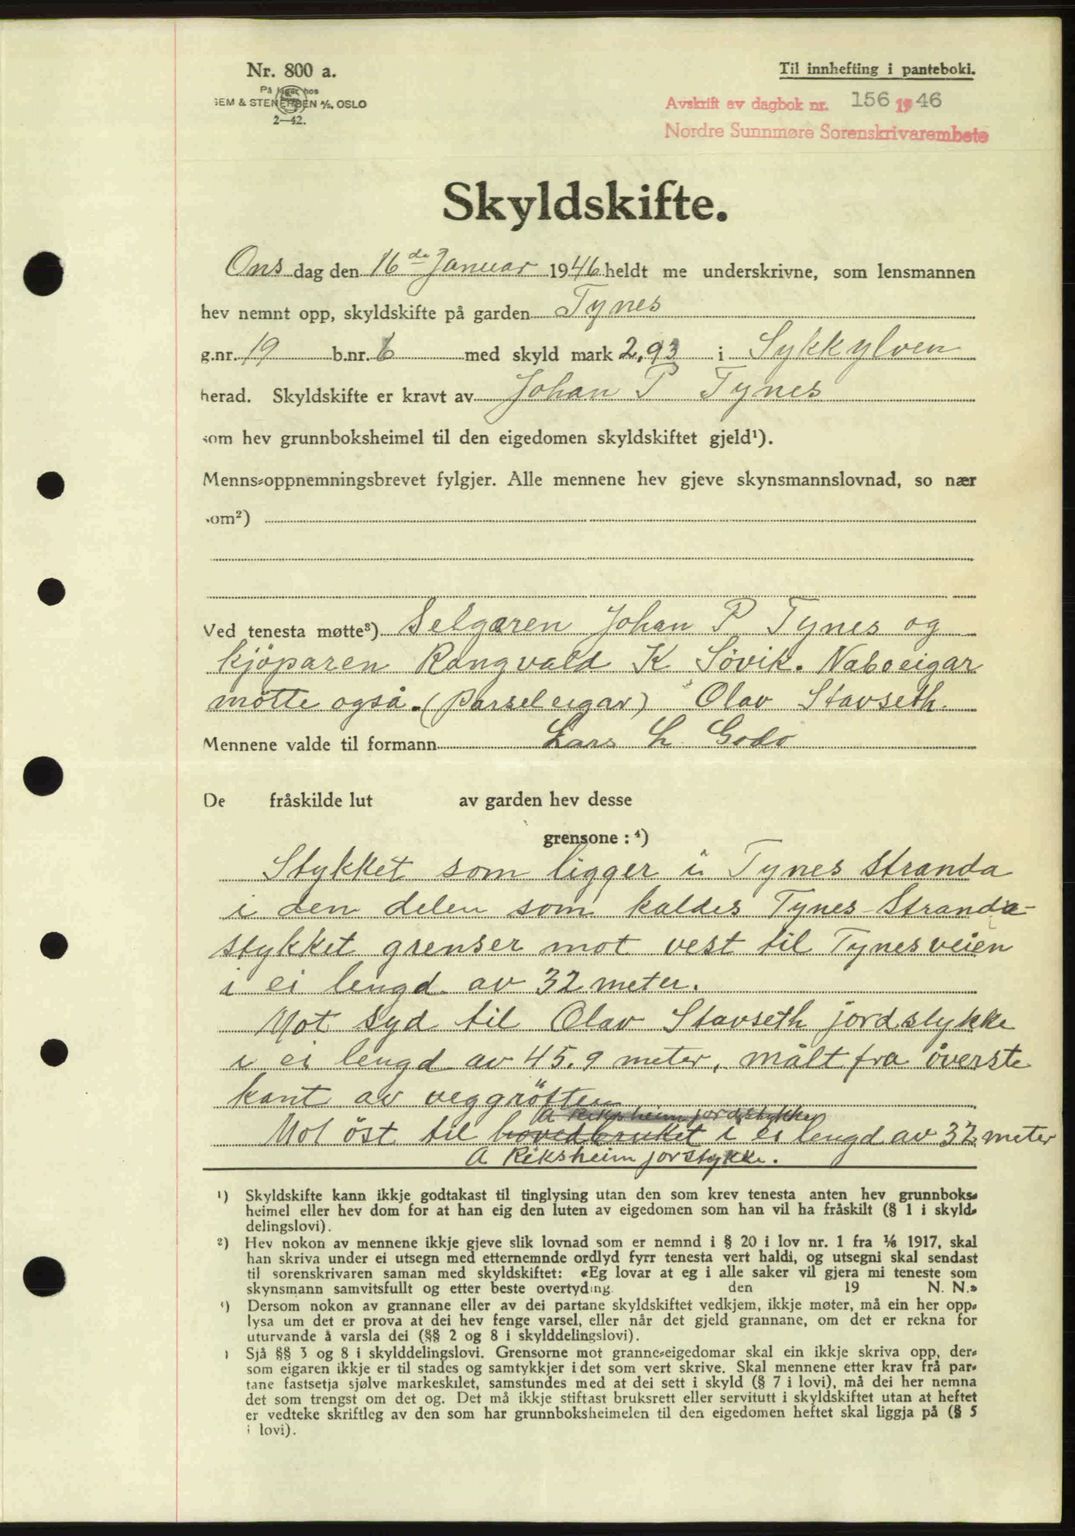 Nr. 800 a.
På lager hos
SEM & STENERSEN A/S, OSLO
2—42.
Til innhefting i panteboki.
Avskrift av dagbok nr. 156 1946
Nordre Sunnmøre Sorenskrivarembete
Skyldskifte.
Ons dag den 16de Januar 1946 heldt me underskrivne, som lensmannen
hev nemnt opp, skyldskifte på garden Tynes
g.nr. 19 b.nr. 6 med skyld mark 2,93 i Sykkylven
herad. Skyldskifte er kravt av Johan P Tynes
som hev grunnboksheimel til den eigedomen skyldskiftet gjeld¹).
Menns-oppnemningsbrevet fylgjer. Alle mennene hev gjeve skynsmannslovnad, so nær
som²)
Ved tenesta møtte³) Selgaren Johan P Tynes og
kjöparen Rangvald K Sövik. Naboeigar
mötte også. (Parseleigar) Olav Stavseth.
Mennene valde til formann Lars L. Godø
De fråskilde lut av garden hev desse
grensone : ⁴)
Stykket som ligger i Tynes Stranda
i den delen som kaldes Tynes-Stranda-
stykket grenser mot vest til Tynesveien
i ei lengd av 32 meter.
Mot syd til Olav Stavseth jordstykke
i ei lengd av 45.9 meter, målt fra överste
kant av veggröften
A Riksheim jordstykke
Mot öst til hovedbruket i ei lengd av 32 meter
A Riksheim jorstykke.
¹) Skyldskifte kann ikkje godtakast til tinglysing utan den som krev tenesta anten hev grunnboks-
heimel eller hev dom for at han eig den luten av eigedomen som han vil ha fråskilt (§ 1 i skyld-
delingslovi).
²) Hev nokon av mennene ikkje gjeve slik lovnad som er nemnd i § 20 i lov nr. 1 fra 1/6 1917, skal
han skriva under ei utsegn med etternemnde ordlyd fyrr tenesta vert haldi, og utsegni skal sendast
til sorenskrivaren saman med skyldskiftet: «Eg lovar at eg i alle saker vil gjera mi teneste som
skynsmann samvitsfullt og etter beste overtyding. den 19 N. N.»
³) Dersom nokon av grannane eller av dei partane skyldskiftet vedkjem, ikkje møter, må ein her opp-
lysa um det er prova at dei hev fenge varsel, eller når det gjeld grannane, om det er rekna for
uturvande å varsla dei (§§ 2 og 8 i skylddelingslovi).
) Sjå §§ 3 og 8 i skylddelingslovi. Grensorne mot granne-eigedomar skal ein ikkje skriva opp, der-
som eigaren ikkje er til stades og samtykkjer i det som vert skrive. Skal mennene etter krav frå par-
tane fastsetja sjølve markeskilet, samstundes med at dei sett i skyld (§ 7 i lovi), må dei her nemna
det som trengst om det og. Det må ikkje stiftast bruksrett eller servitutt i skyldskiftet utan at heftet
er vedteke skriftleg av den som har grunnboksheimelen til den eigedomen heftet skal liggja på (§ 5
i lovi).